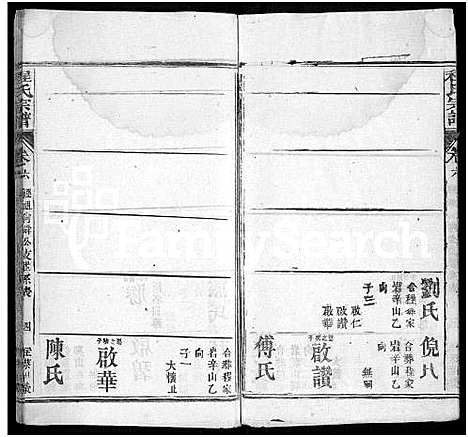 程氏宗譜
卷六
劉氏 倪氏
合葬程家
岩辛山乙
向
子三
啟仁
啟讃
啟華
啟讃
合葬程家
岩辛山乙
向
無嗣
傅氏
程氏宗譜
卷六
四
啟華
合葬程家
岩辛山乙
向
子一
大懷止
陳氏
FamilySearch